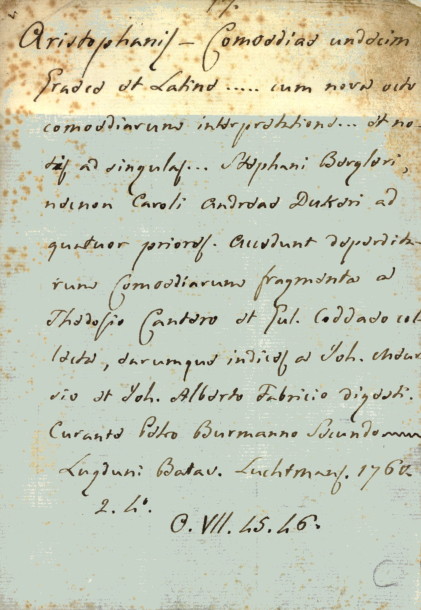 Aristophanis – Comoedias undecim
Graece et Latine ..... cum nova octo
comoediarum interpretatione... et no-
tis ad singulas... Stephani Bergleri,
necnon Caroli Andreae Dukeri ad
quatuor priores. Accedunt deperdita-
rum Comoediarum fragmenta a
Theodosio Cantero et Gul. Coddaeo col-
lecta, earumque indices a Joh. Meur-
sio et Joh. Alberto Fabricio digesti.
Curante Petro Burmanno Secundo
Lugduni Batav. Luchtmans. 1760.
2. 4°.
O. VII. 45. 46.
C